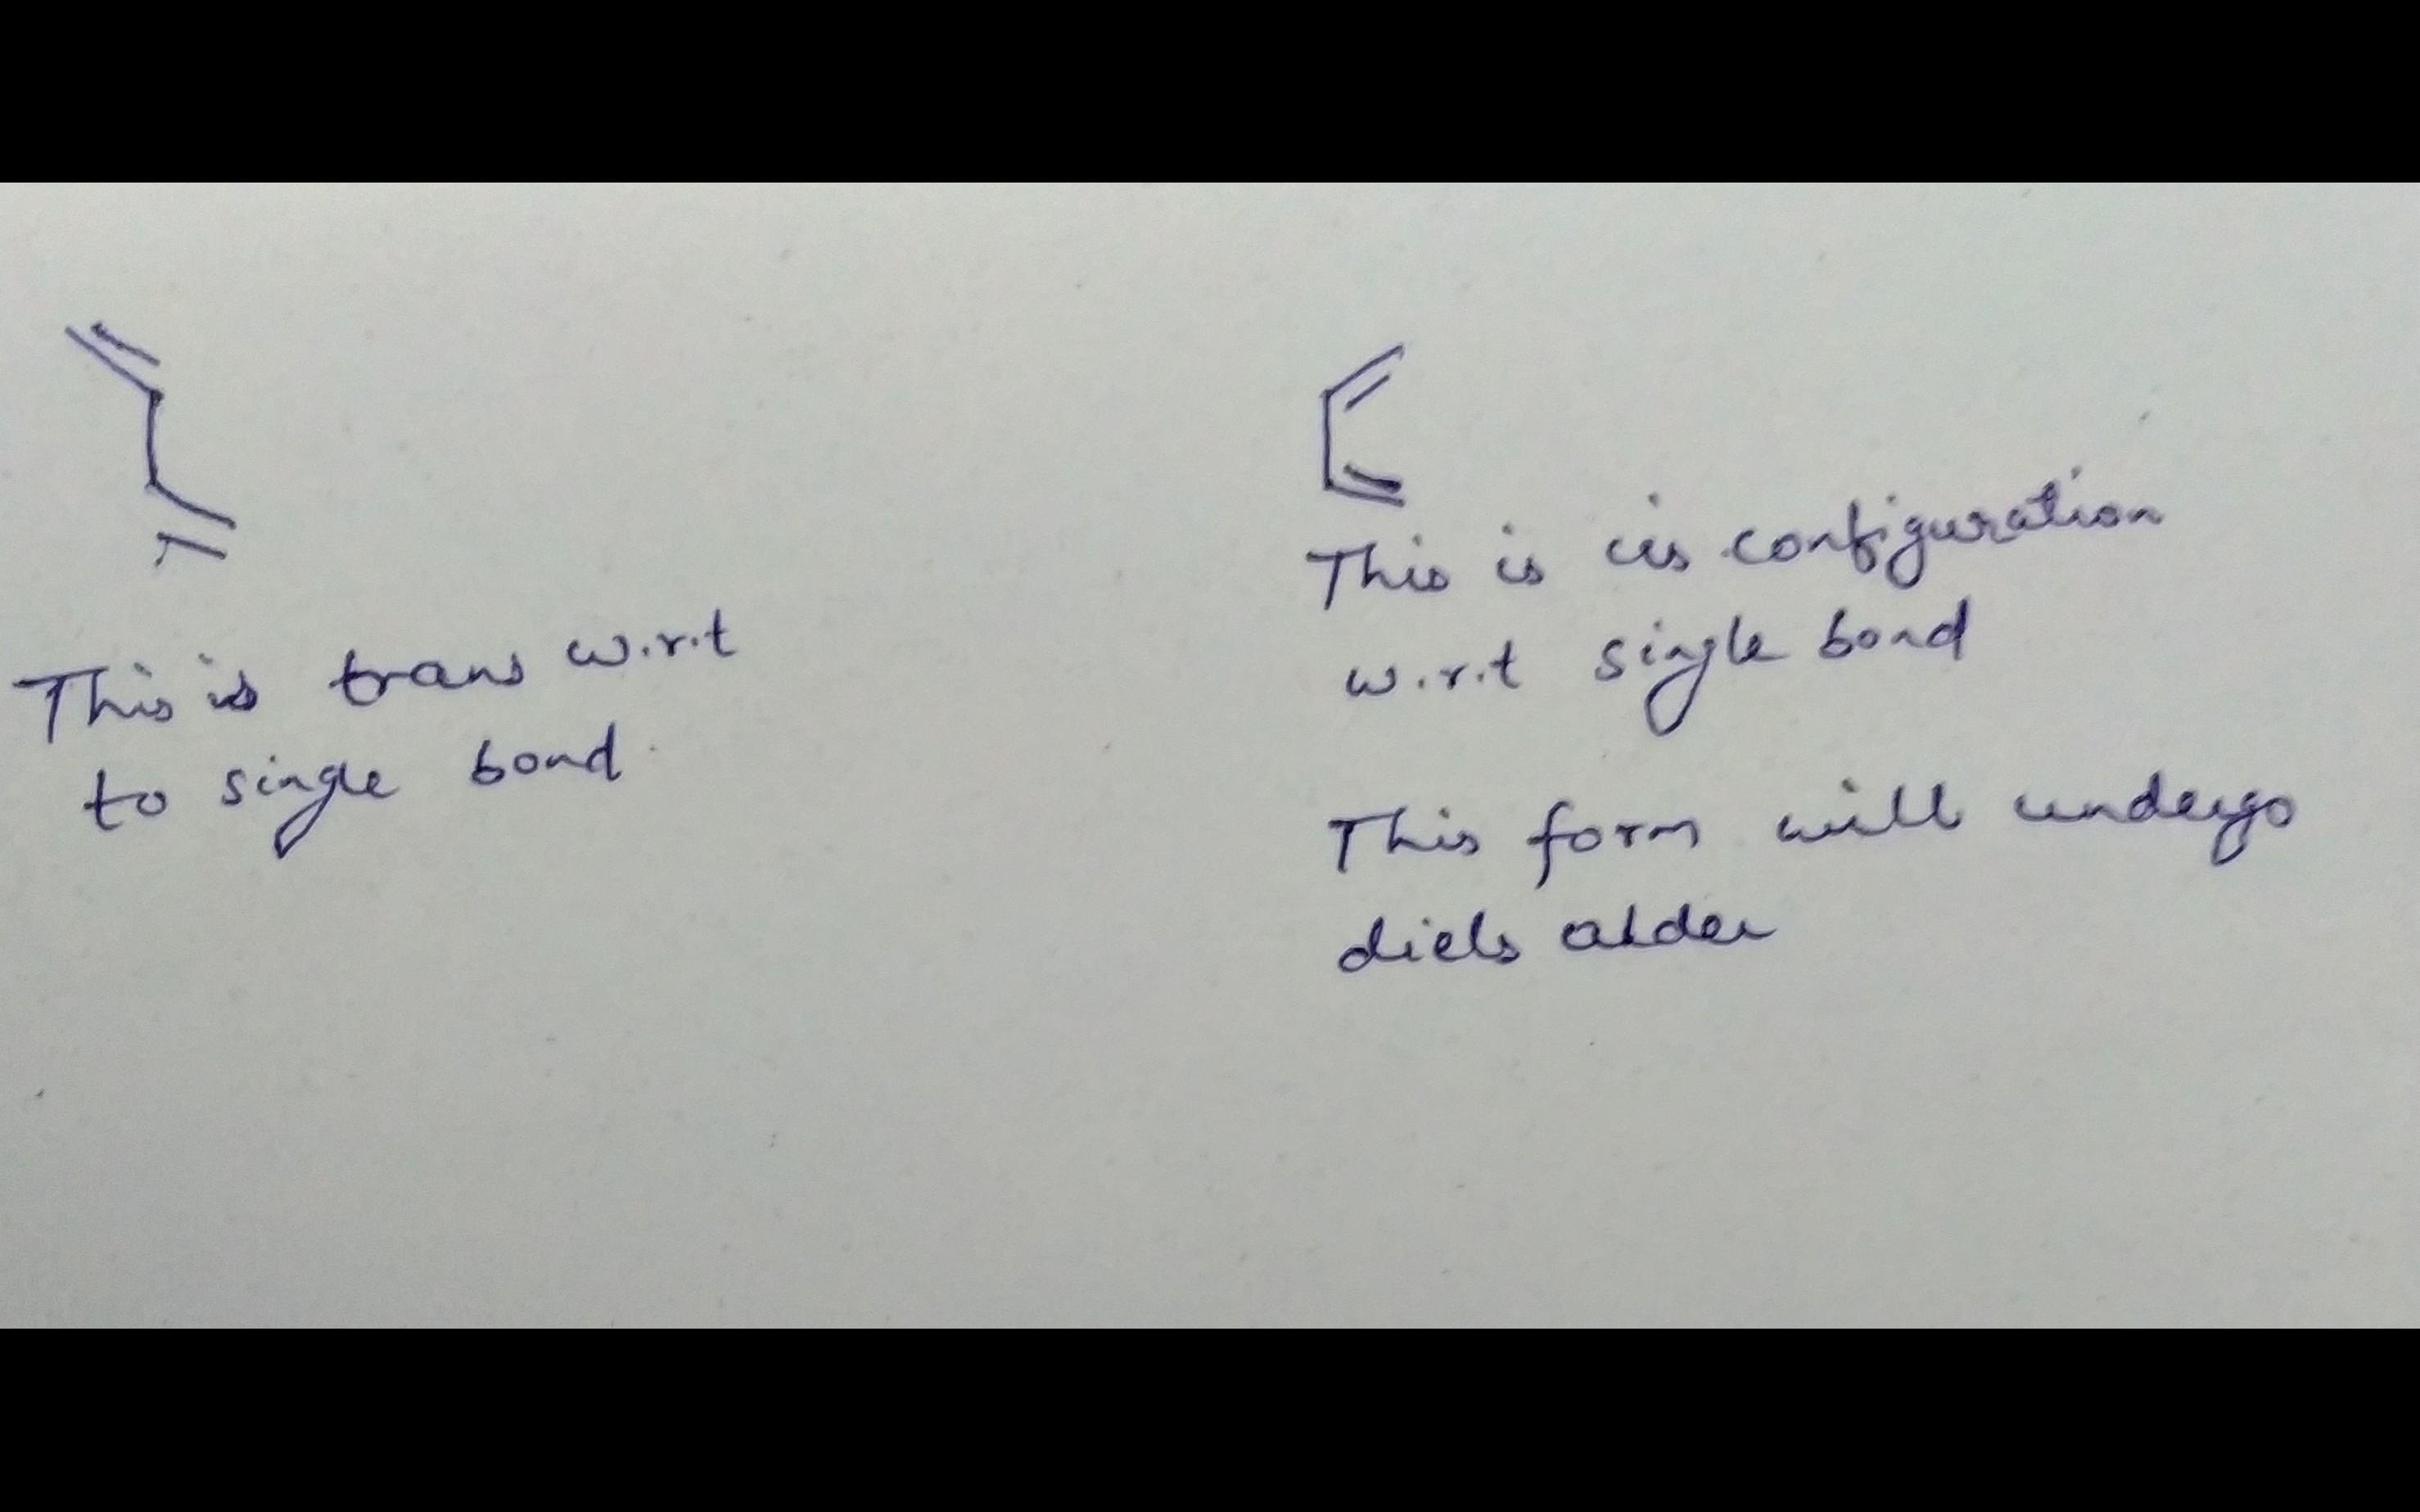 This is trans w.r.t
to single bond.
This is cis configuration
w.r.t single bond
This form will undergo
diels alder